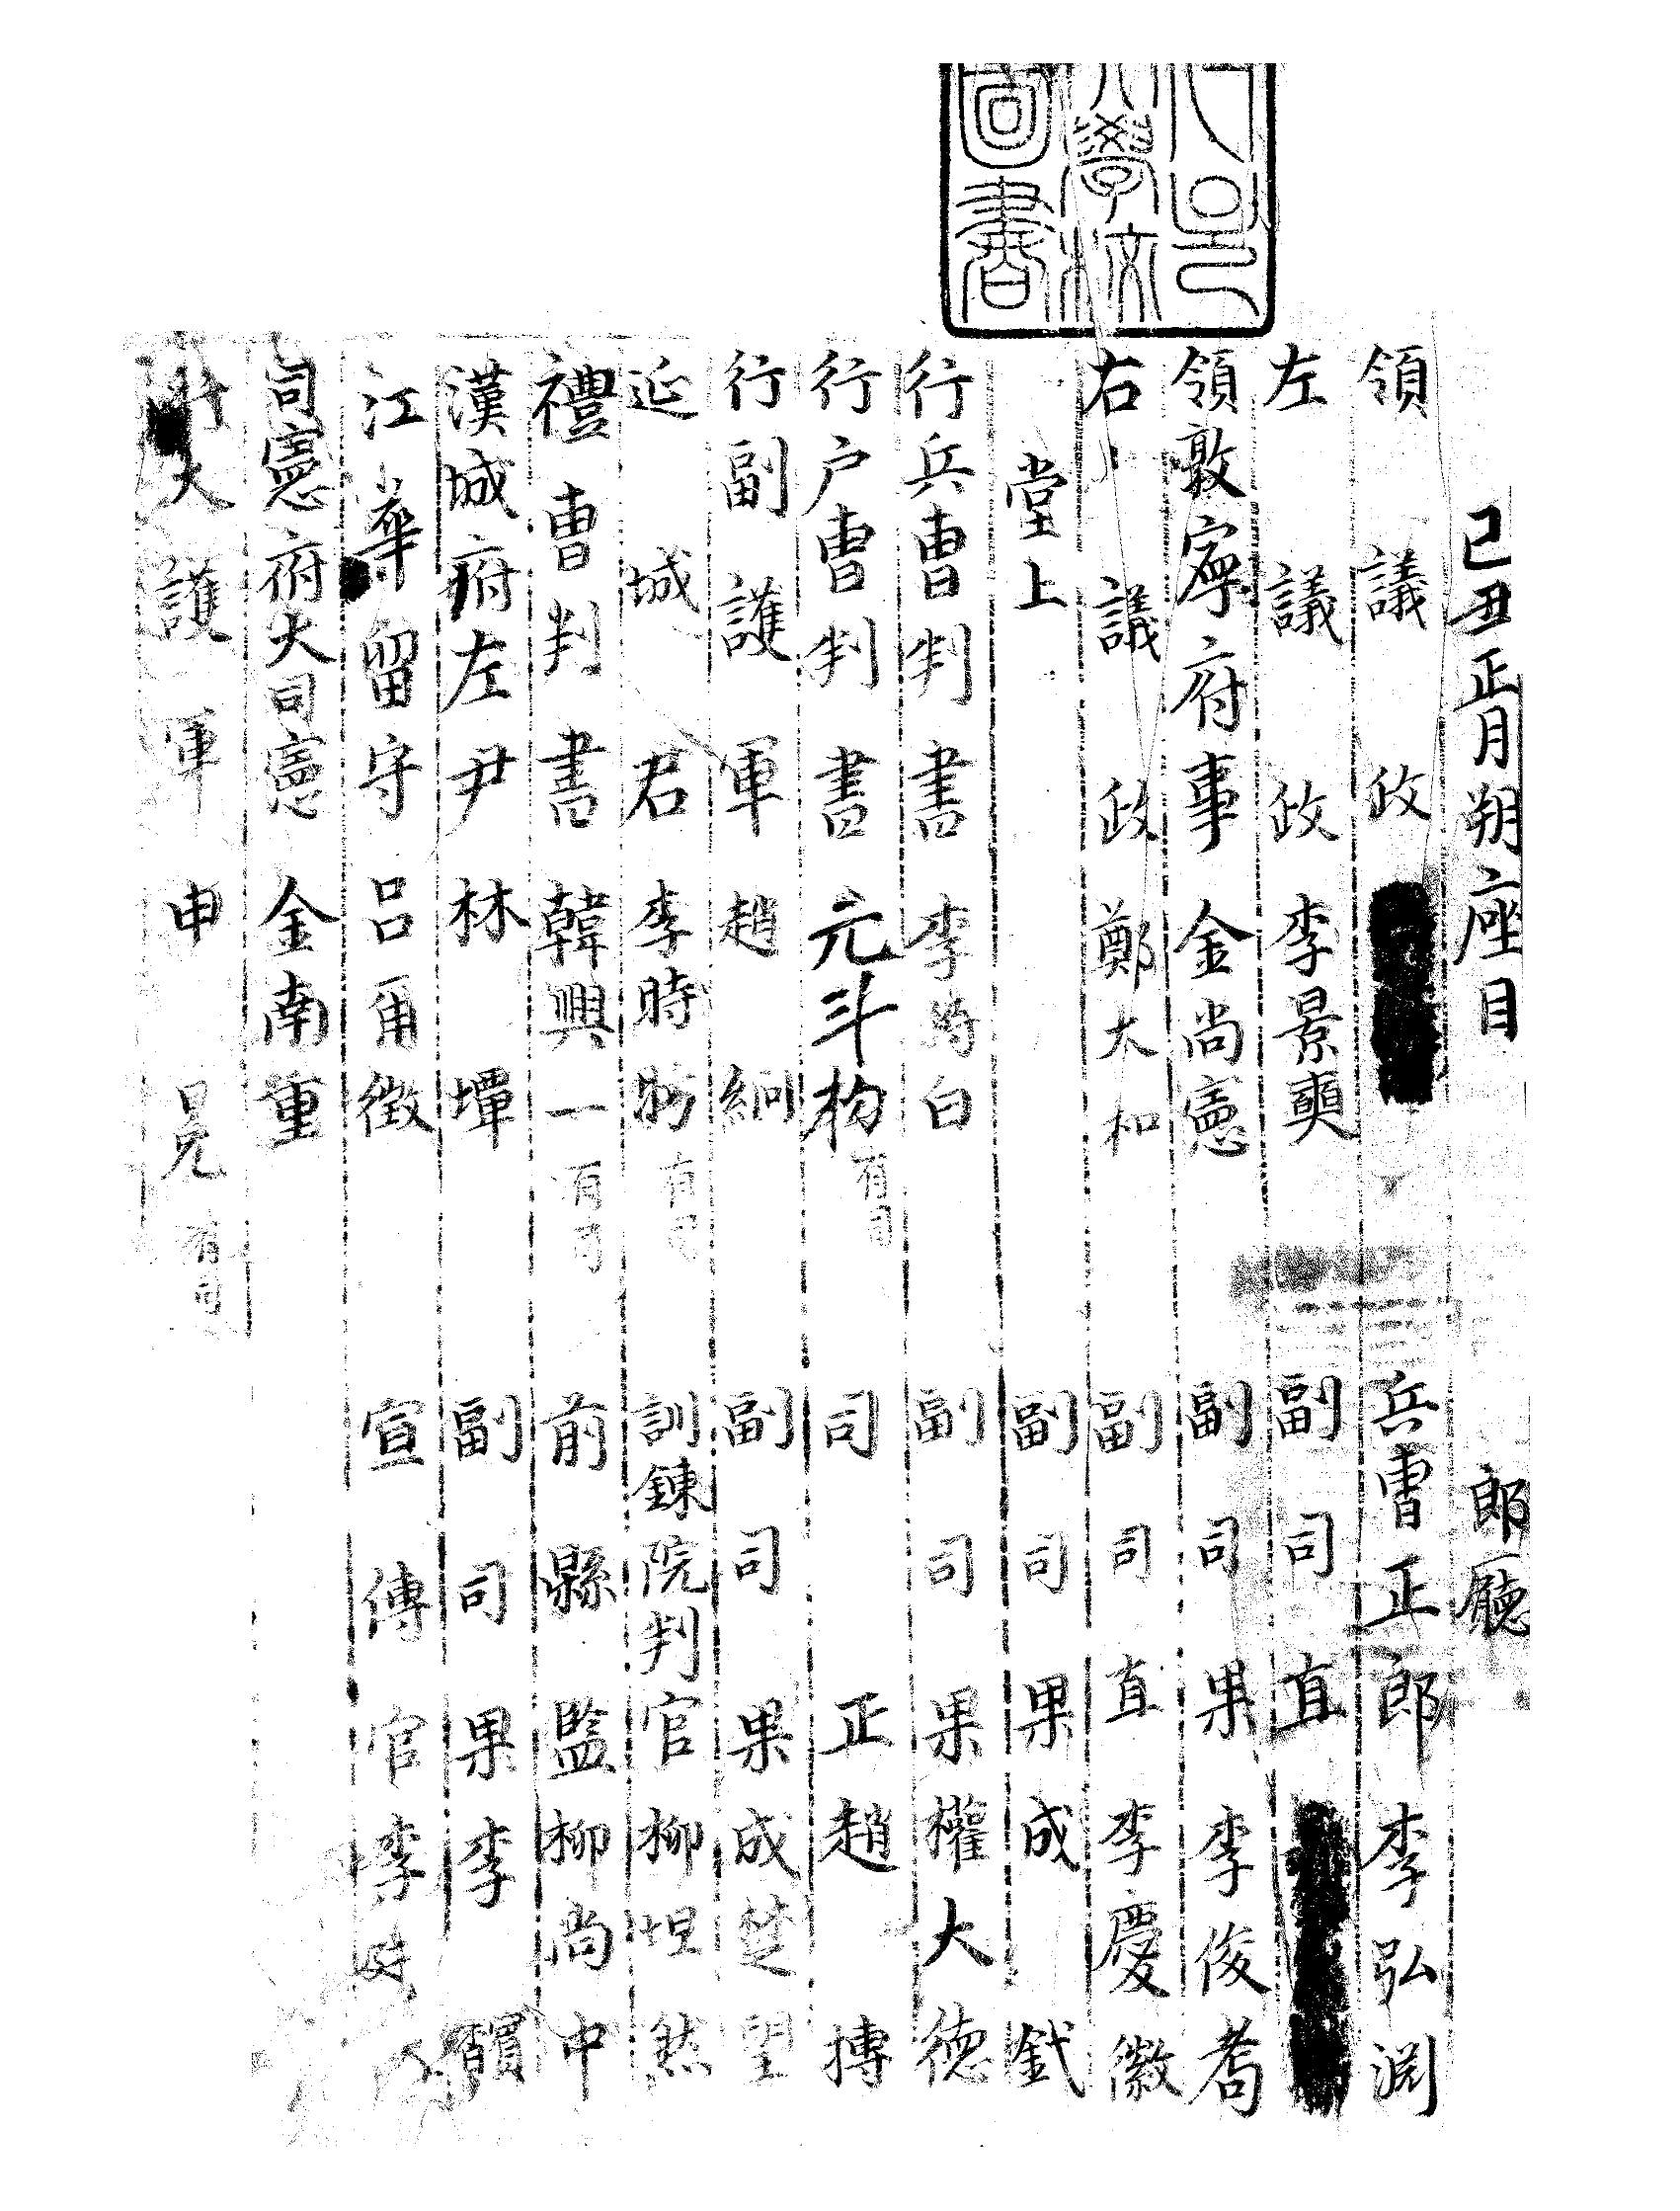 己丑正月朔座目
領議政
左議政李景奭
領敦寧府事金尚憲
右議政鄭太和
堂上
行兵曺判書李時白
行户曺判書元斗杓有司
行副護軍趙絅
延城君李時昉有司
禮曺判書韓興一有司
漢城府左尹林墰
江華留守呂爾徵
司憲府大司憲金南重
行大護軍申晃有司
郎廳
兵曺正郎李弘淵
副司直
副司果李俊耉
副司直李慶徽
副司果成釴
副司果權大德
司正趙摶
副司果成楚望
訓鍊院判官柳坦然
前縣監柳尚中
副司果李馪
宣傳官李